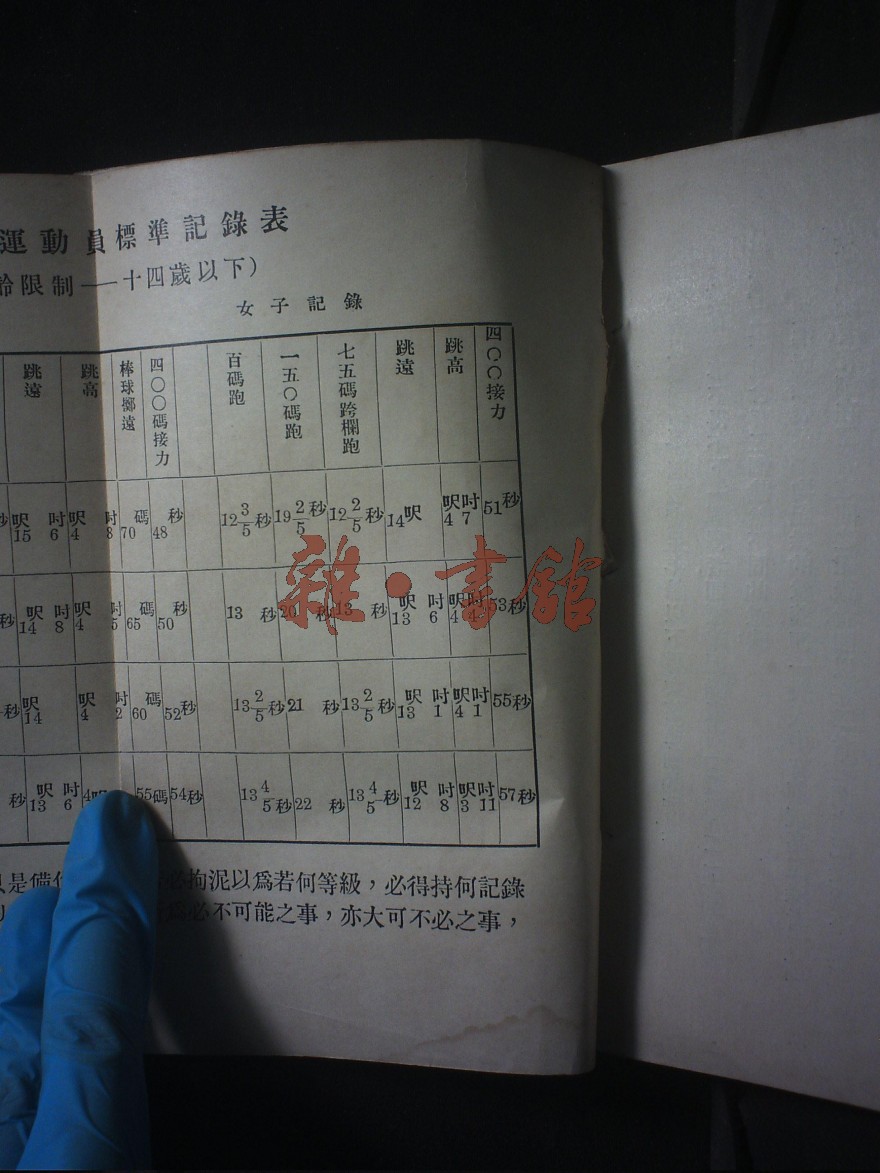 運動員標準記錄表
齡限制——十四歲以下)
女子記錄
跳遠 跳高 棒球擲遠 四〇〇碼接力 百碼跑 一五〇碼跑 七五碼跨欄跑 跳遠 跳高 四〇〇接力
秒 15呎6吋 4呎8吋 70碼 48秒 12 3/5秒 19 2/5秒 12 2/5秒 14呎 4呎7吋 51秒
秒 14呎8吋 4呎5吋 65碼 50秒 13秒 20秒 13秒 13呎6吋 4呎4吋 53秒
秒 14呎 4呎2吋 60碼 52秒 13 2/5秒 21秒 13 2/5秒 13呎1吋 4呎1吋 55秒
秒 13呎6吋 4呎 55碼 54秒 13 4/5秒 22秒 13 4/5秒 12呎8吋 3呎11吋 57秒
是備 必拘泥以爲若何等級,必得持何記錄
爲必不可能之事,亦大可不必之事,
雜·書館